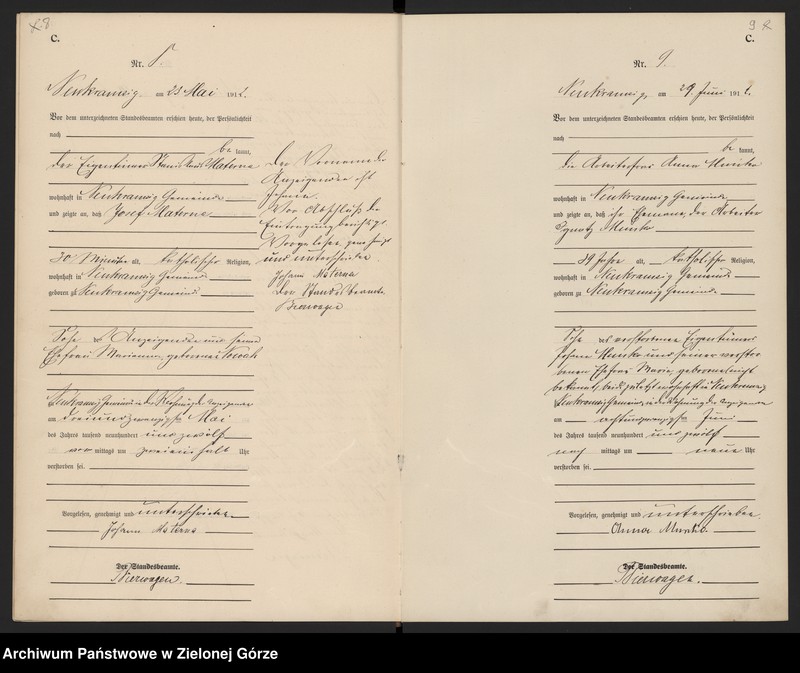 8
C.
Nr. 8
Neukramzig am 23 Mai 1912.
Vor dem unterzeichneten Standesbeamten erschien heute, der Persönlichkeit
nach
be kannt,
der Eigentümer Stanislaus Materna
wohnhaft in Neukramzig Gemeinde
und zeigte an, daß Josef Materna
30 Minuten alt, katholischer Religion,
wohnhaft in Neukramzig Gemeinde
geboren zu Neukramzig Gemeinde
Sohn des Anzeigenden und seiner
Ehefrau Marianna, geborenen Nowak
Neukramzig Gemeinde in der Wohnung des Anzeigenden
am dreiundzwanzigsten Mai
des Jahres tausend neunhundert und zwölf
vor mittags um zweieinhalb Uhr
verstorben sei.
Vorgelesen, genehmigt und unterschrieben
Johann Materna
Der Standesbeamte.
Bierwagen.
Der Vorname des
Anzeigenden ist
Johann.
Vor Abschluß der
Eintragung berichtigt.
Vorgelesen, genehmigt
und unterschrieben
Johann Materna
Der Standesbeamte
Bierwagen
9
C.
Nr. 9.
Neukramzig, am 29. Juni 1912.
Vor dem unterzeichneten Standesbeamten erschien heute, der Persönlichkeit
nach
be kannt,
die Arbeiterfrau Anna
wohnhaft in Neukramzig Gemeinde
und zeigte an, daß ihr Ehemann, der Arbeiter
Ignatz
39 Jahre alt, katholischer Religion,
wohnhaft in Neukramzig Gemeinde
geboren zu Neukramzig Gemeinde
Sohn des verstorbenen Eigentümers
Johann und seiner verstor
benen Ehefrau Maria, geborene nicht
bekannt, beide zuletzt wohnhaft in Neukramzig
Neukramzig Gemeinde, in der Wohnung der Anzeigenden
am achtundzwanzigsten Juni
des Jahres tausend neunhundert und zwölf
nach mittags um neun Uhr
verstorben sei.
Vorgelesen, genehmigt und unterschrieben.
Anna
Der Standesbeamte.
Bierwagen.
Archiwum Państwowe w Zielonej Górze